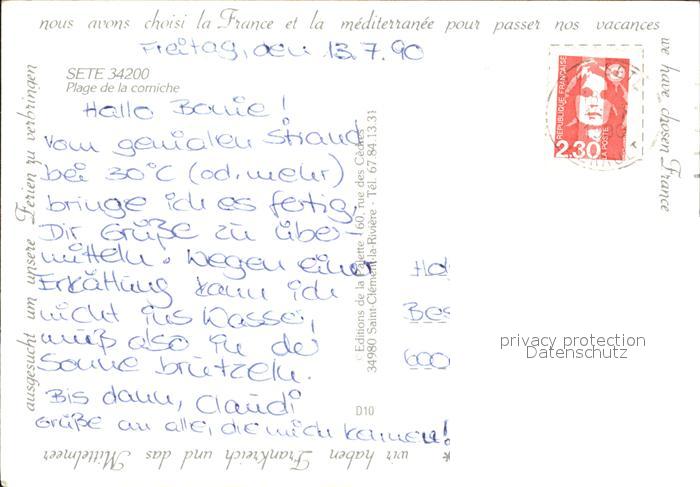 nous avons choisi la France et la méditerranée pour passer nos vacances
we have chosen France
wir haben Frankreich und das Mittelmeer
ausgesucht um unsere Ferien zu verbringen
SETE 34200
Plage de la corniche
Freitag, den 13.7.90
Hallo
vom genialen Strand
bei 30°C (od. mehr)
bringe ich es fertig,
Dir Grüße zu über-
mitteln. Wegen einer
Erkältung kann ich
nicht ins Wasser,
muß also in de
Sonne brutzeln.
Bis dann, Claudi
Grüße an alle, die mich kennen!
Editions de la Galette - 60, rue des Cèdres
34980 Saint-Clément-la-Rivière - Tél. 67 84.13.31
D10
REPUBLIQUE FRANÇAISE
LA POSTE
2,30
Bes
600
privacy protection
Datenschutz